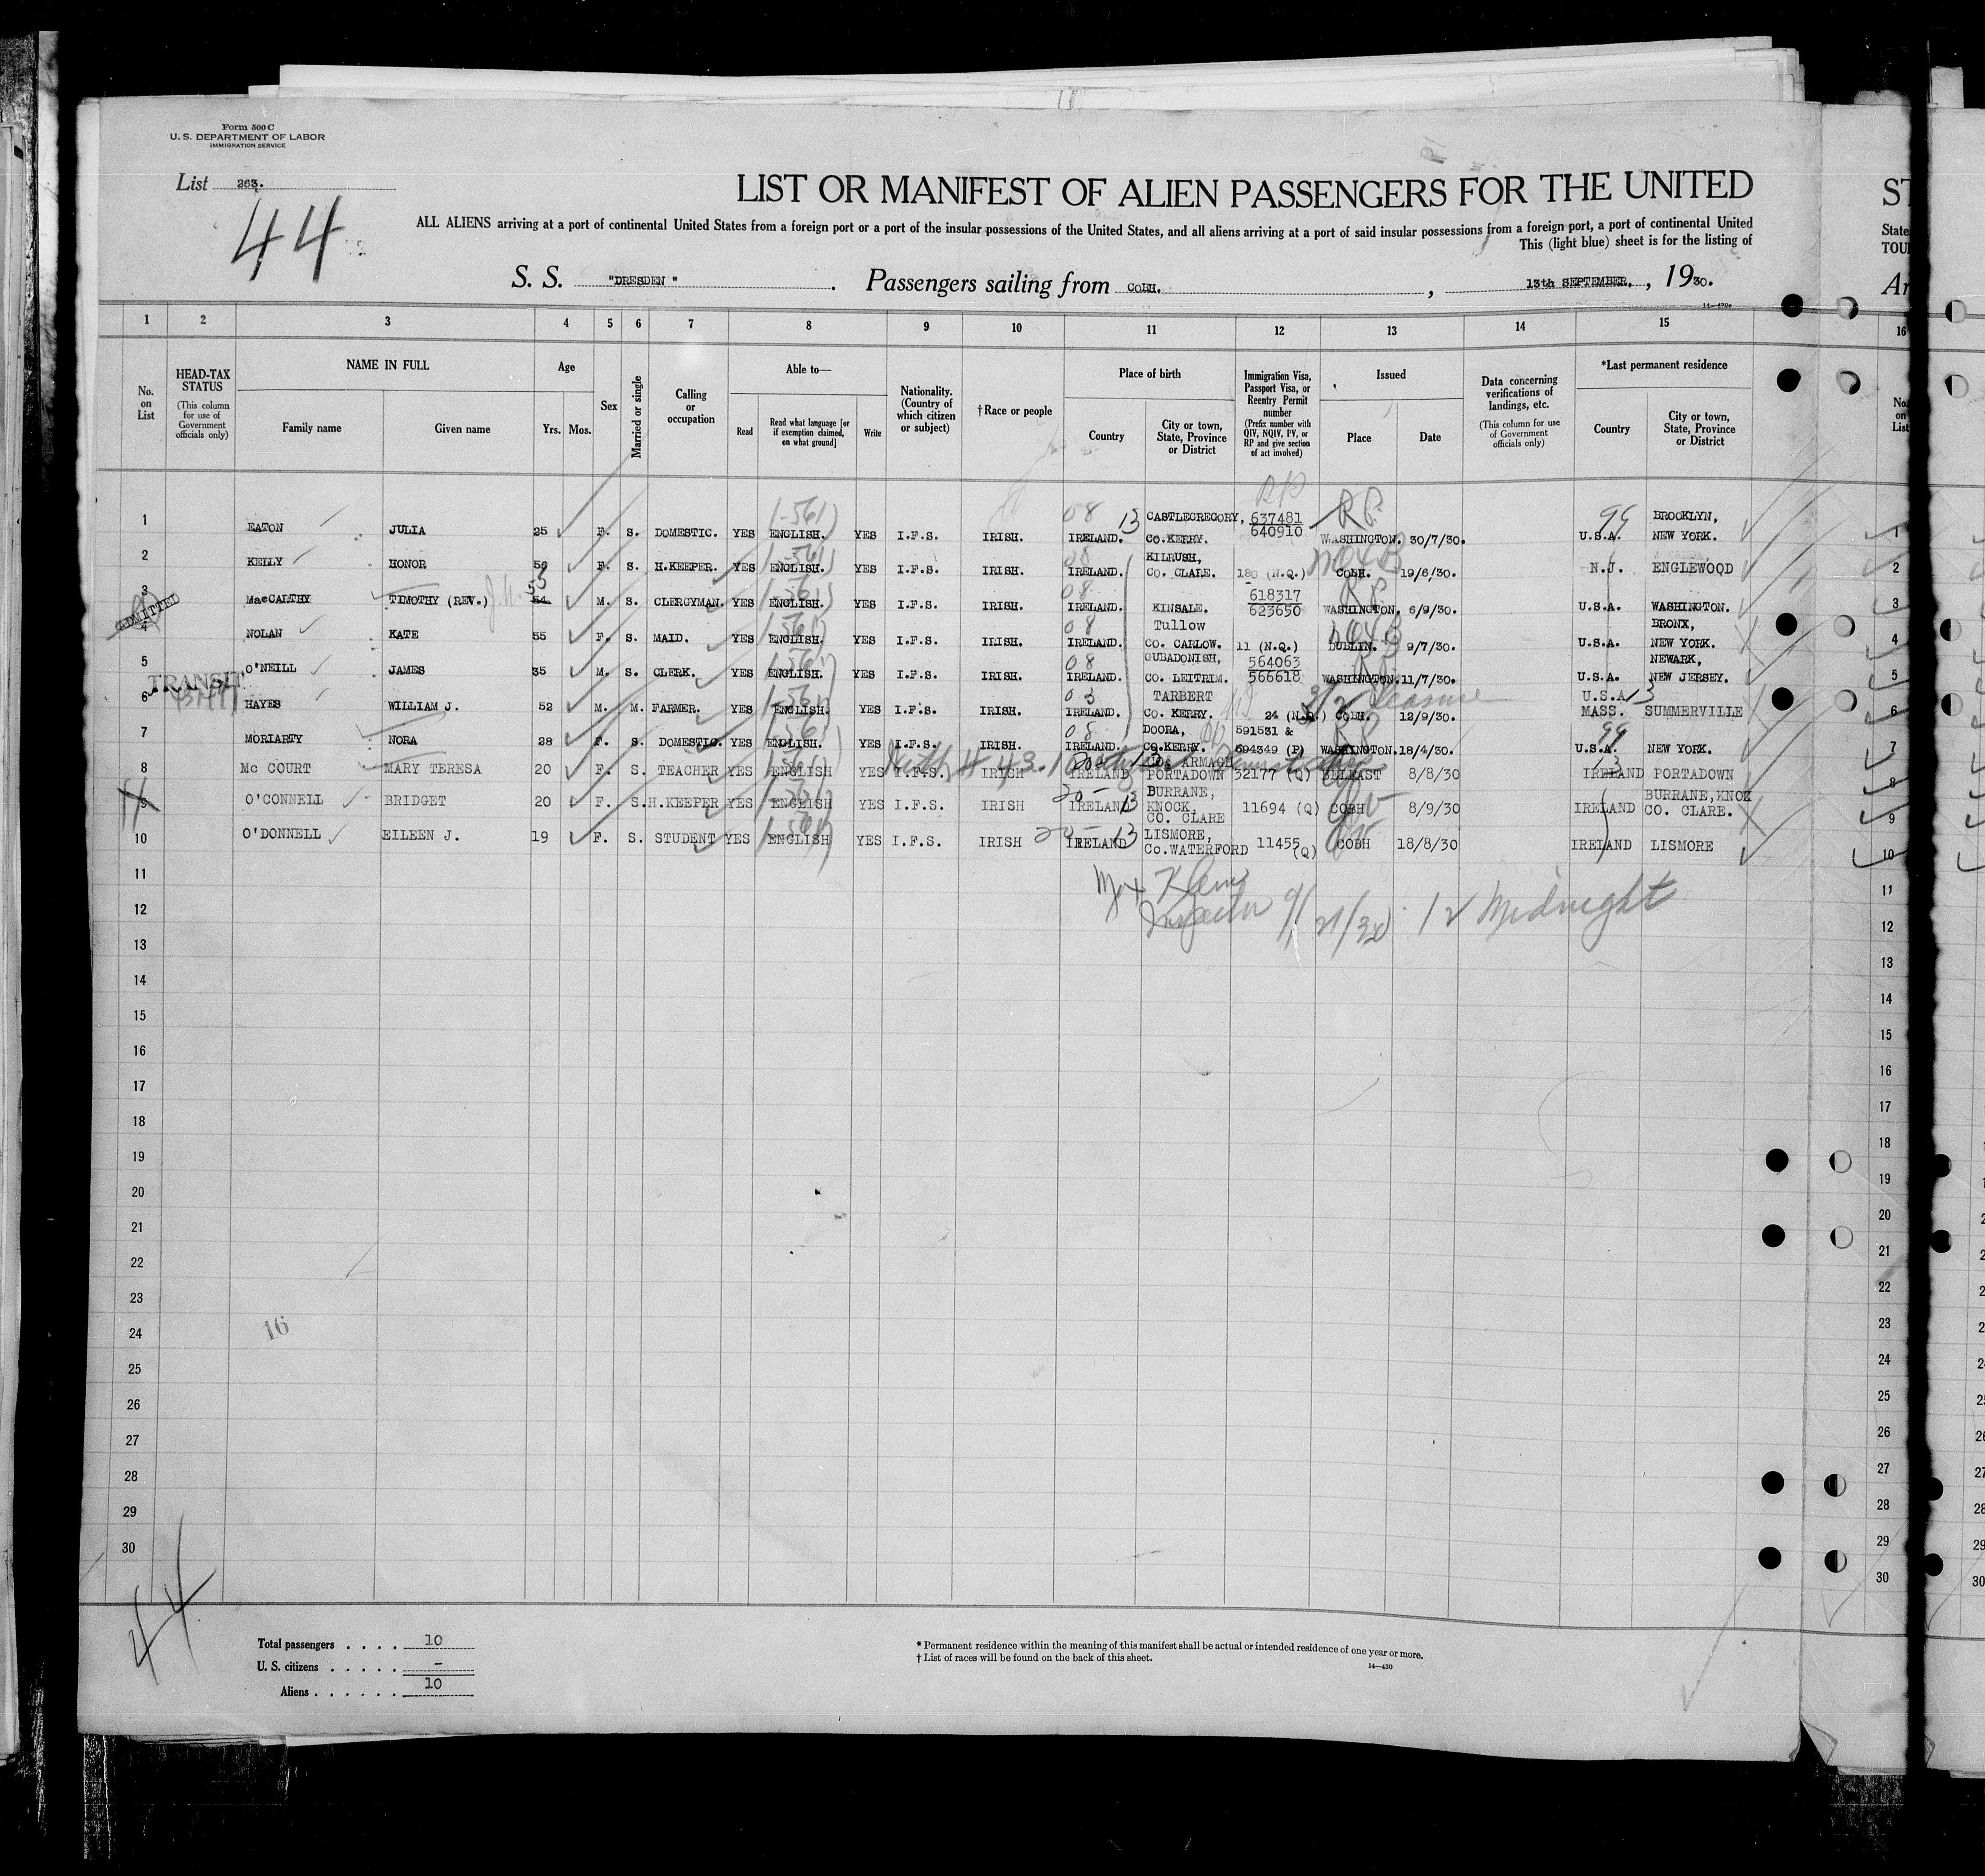 Form 500 C
U. S. DEPARTMENT OF LABOR
IMMIGRATION SERVICE
List 263.
44
LIST OR MANIFEST OF ALIEN PASSENGERS FOR THE UNITED
ALL ALIENS arriving at a port of continental United States from a foreign port or a port of the insular possessions of the United States, and all aliens arriving at a port of said insular possessions from a foreign port, a port of continental United
This (light blue) sheet is for the listing of
S. S. "DRESDEN" . Passengers sailing from COBH. , 13th SEPTEMBER. , 1930.
14—430
1 2 3 4 5 6 7 8 9 10 11 12 13 14 15
No. on List
HEAD-TAX STATUS (This column for use of Government officials only)
NAME IN FULL Family name Given name
Age Yrs. Mos.
Sex
Married or single
Calling or occupation
Able to— Read Read what language [or if exemption claimed, on what ground] Write
Nationality. (Country of which citizen or subject)
† Race or people
Place of birth Country City or town, State, Province or District
Immigration Visa, Passport Visa, or Reentry Permit number (Prefix number with QIV, NQIV, PV, or RP and give section of act involved)
Issued Place Date
Data concerning verifications of landings, etc. (This column for use of Government officials only)
*Last permanent residence Country City or town, State, Province or District
1 EATON JULIA 25 F. S. DOMESTIC. YES ENGLISH. YES I.F.S. IRISH. IRELAND. CASTLEGREGORY, CO.KERRY. 637481 640910 WASHINGTON. 30/7/30. U.S.A. BROOKLYN, NEW YORK.
2 KEILY HONOR 56 F. S. H.KEEPER. YES ENGLISH. YES I.F.S. IRISH. IRELAND. KILRUSH, CO. CLARE. 180 (N.Q.) COBH. 19/6/30. N.J. ENGLEWOOD
3 MacCALTHY TIMOTHY (REV.) 54 53 M. S. CLERGYMAN. YES ENGLISH. YES I.F.S. IRISH. IRELAND. KINSALE. 618317 623650 WASHINGTON. 6/9/30. U.S.A. WASHINGTON.
ADMITTED
4 NOLAN KATE 55 F. S. MAID. YES ENGLISH. YES I.F.S. IRISH. IRELAND. Tullow CO. CARLOW. 11 (N.Q.) DUBLIN. 9/7/30. U.S.A. BRONX, NEW YORK.
5 O'NEILL JAMES 35 M. S. CLERK. YES ENGLISH. YES I.F.S. IRISH. IRELAND. OUBADONISH, CO. LEITRIM. 564063 566618 WASHINGTON. 11/7/30. U.S.A. NEWARK, NEW JERSEY.
TRANSIT
6 HAYES WILLIAM J. 52 M. M. FARMER. YES ENGLISH. YES I.F.S. IRISH. IRELAND. TARBERT CO. KERRY. 24 (N.Q.) COBH. 12/9/30. U.S.A MASS. SUMMERVILLE
7 MORIARTY NORA 28 F. S. DOMESTIC. YES ENGLISH. YES I.F.S. IRISH. IRELAND. DOORA, CO.KERRY. 591531 & 594349 (P) WASHINGTON. 18/4/30. U.S.A. NEW YORK.
8 Mc COURT MARY TERESA 20 F. S. TEACHER YES ENGLISH YES I.F.S. IRISH IRELAND CO. ARMAGH PORTADOWN 32177 (Q) BELFAST 8/8/30 IRELAND PORTADOWN
9 O'CONNELL BRIDGET 20 F. S. H.KEEPER YES ENGLISH YES I.F.S. IRISH IRELAND BURRANE, KNOCK, CO. CLARE 11694 (Q) COBH 8/9/30 IRELAND BURRANE, KNOK CO. CLARE.
10 O'DONNELL EILEEN J. 19 F. S. STUDENT YES ENGLISH YES I.F.S. IRISH IRELAND LISMORE, Co.WATERFORD 11455 (Q) COBH 18/8/30 IRELAND LISMORE
11
9/21/30 12 Midnight
12
13
14
15
16
17
18
19
20
21
22
23
24
16
25
26
27
28
29
30
44
Total passengers . . . . 10
U. S. citizens . . . . . –
Aliens . . . . . . 10
* Permanent residence within the meaning of this manifest shall be actual or intended residence of one year or more.
† List of races will be found on the back of this sheet.
14—430
ST
State
TOU
Ar
16
No. on List
1
2
3
4
5
6
7
8
9
10
11
12
13
14
15
16
17
18
19
20
21
22
23
24
25
26
27
28
29
30